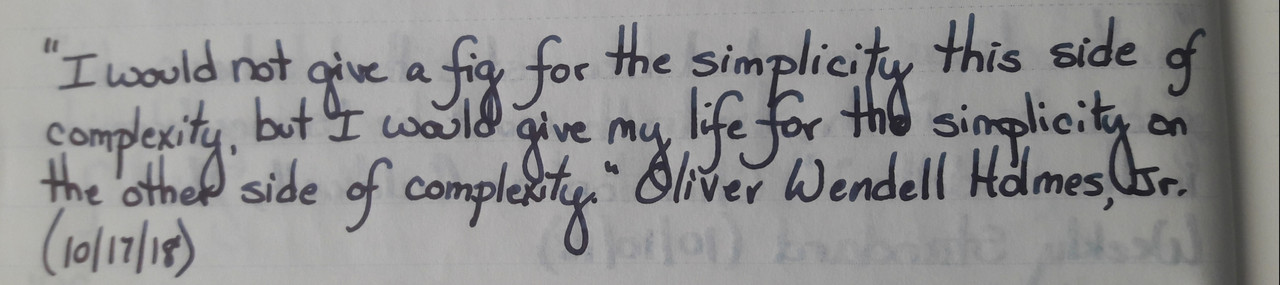 "I would not give a fig for the simplicity this side of
complexity, but I would give my life for the simplicity on
the other side of complexity." Oliver Wendell Holmes, Jr.
(10/17/18)